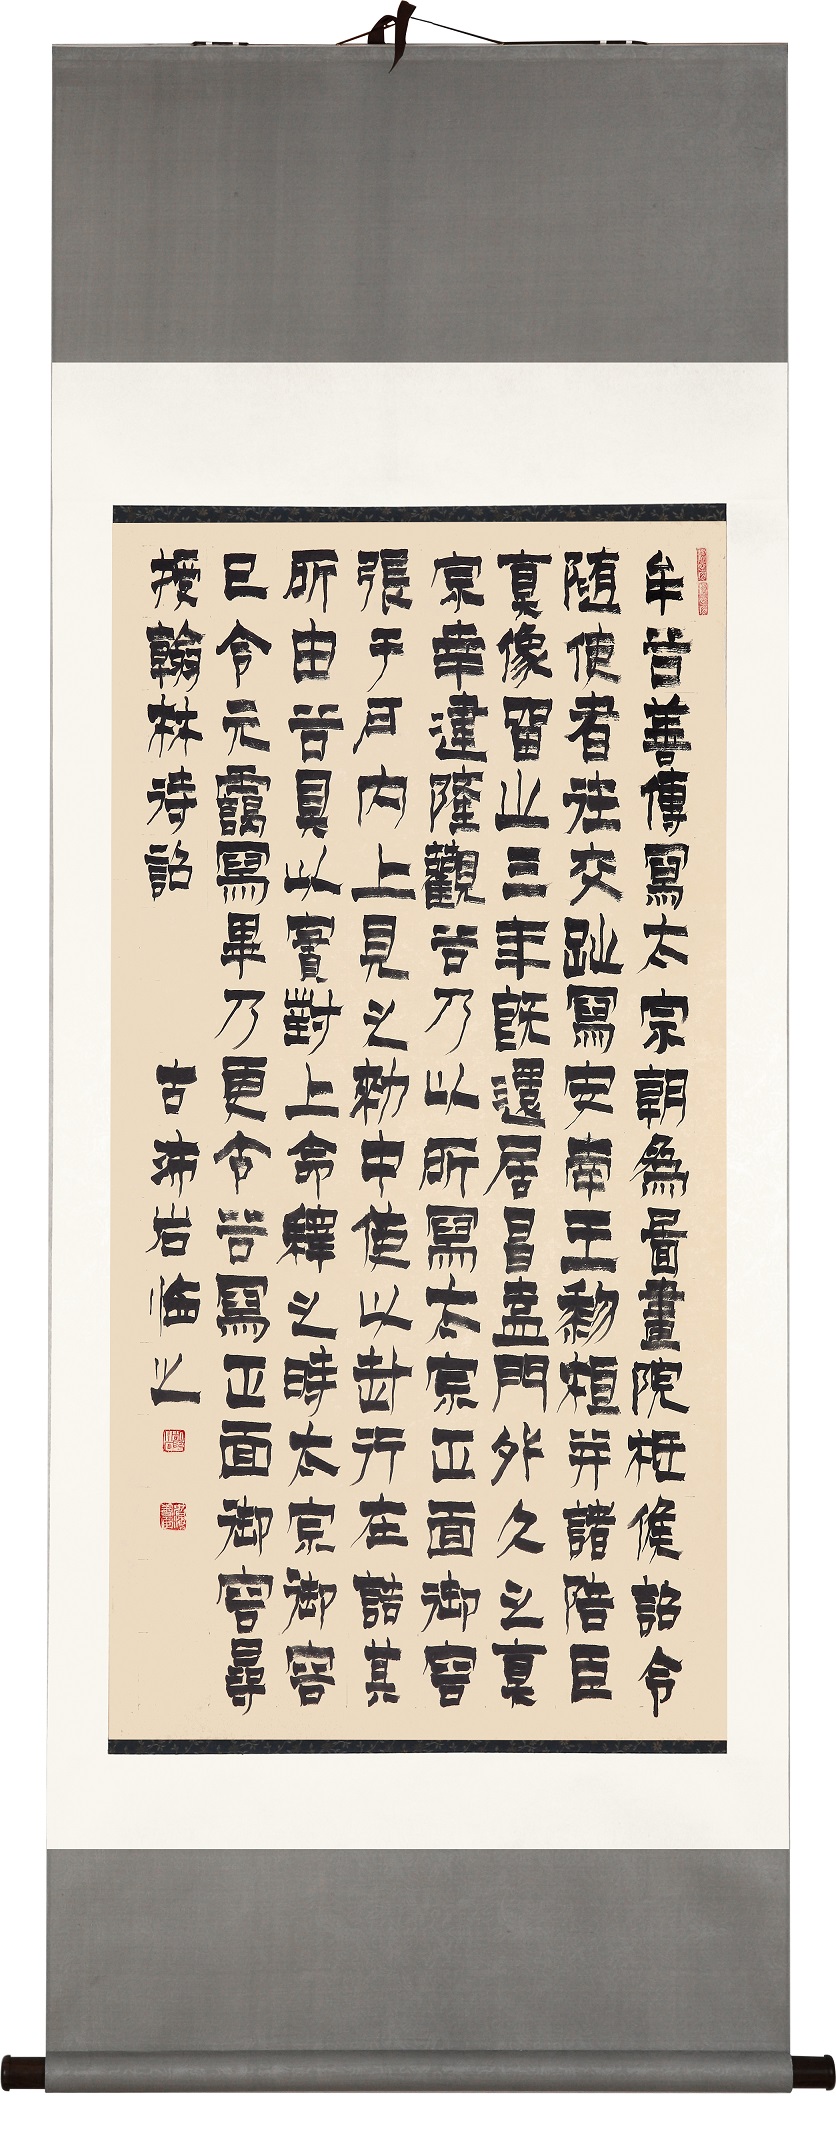 牟谷善傳寫太宗朝為圖畫院祗候詔令
隨使者往交趾寫安南王黎桓并諸陪臣
真像留止三年既還居昌盍門外久之真
宗幸建隆觀谷乃以所寫太宗正面御容
張于戶內上見之勅中使以赴行在詰其
所由谷具以實對上命釋之時太宗御容
已令元靄寫畢乃更令谷寫正面御容尋
授翰林待詔 古沛岩臨之